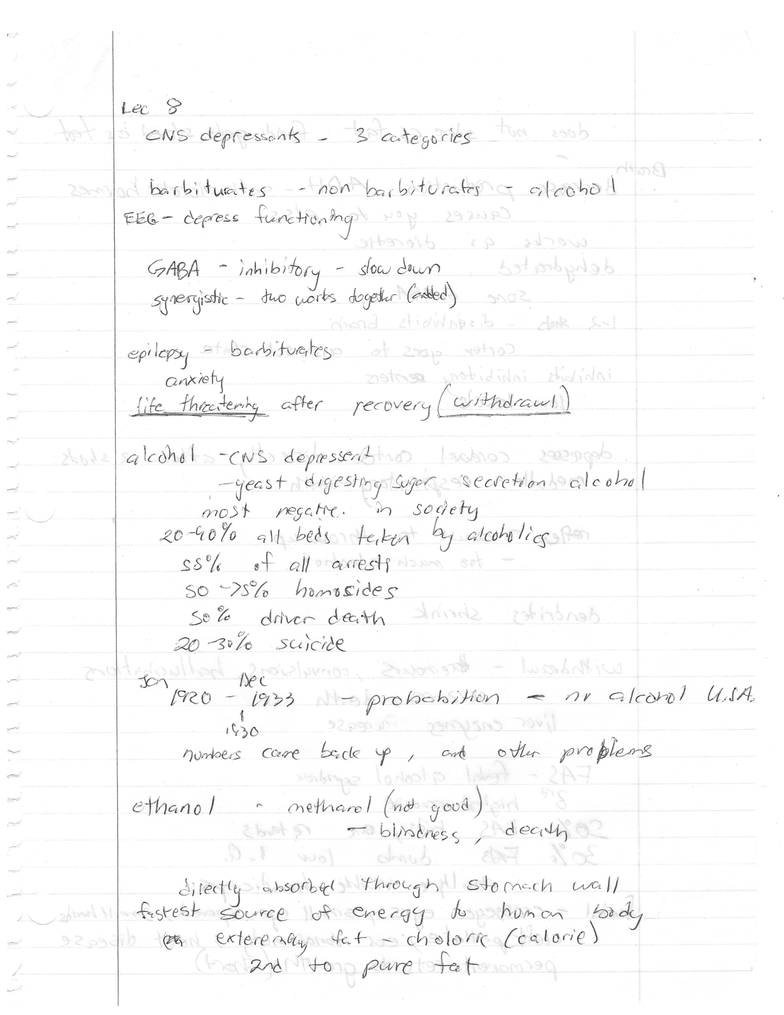 Lec 8
CNS depressants - 3 categories
barbiturates - non barbiturates - alcohol
EEG - depress functioning
GABA - inhibitory - slow down
synergistic - two works together (added)
epilepsy - barbiturates
anxiety
life threatening after recovery (withdrawl)
alcohol - CNS depressent
- yeast digesting sugar secretion alcohol
most negative. in society
20-40% all beds taken by alcoholics
55% of all arrests
50-75% homosides
50% driver death
20-30% suicide
Jan Dec
1920 - 1933 - probabition - no alcohol U.S.A.
1930
numbers came back up, and other problems
ethanol - methanol (not good)
- blindness, death
directly absorbed through stomach wall
fastest source of energy to human body
fat - choloric (calorie)
2nd to pure fat